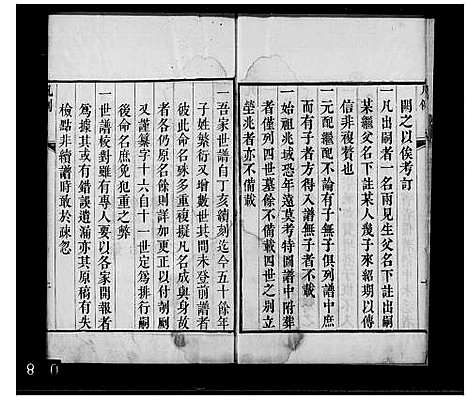 凡例
闕之以俟考訂
一凡出嗣者一名兩見生父名下註出嗣
某繼父名下註某人幾子來紹期以傳
信非複贅也
一元配繼配不論有子無子俱列譜中庶
而有子者方得入譜無子者不載
一始祖兆域恐年遠莫考特圖譜中附葬
者僅列四世墓餘不備載四世之别立
塋兆者亦不備載
一吾家世譜自丁亥續刻迄今五十餘年
子姓繁衍又增數世其間未登前譜者
彼此命名殊多重複擬凡名成與身故
者各仍原名餘則詳加更正以付剞劂
又謹纂字十六自十一世定爲排行嗣
後命名庶免犯重之弊
一世譜校對雖有專人要以各家開報者
爲據其或有錯誤遺漏亦其原稿有失
檢點非續譜時敢於疎忽
凡例
8 0